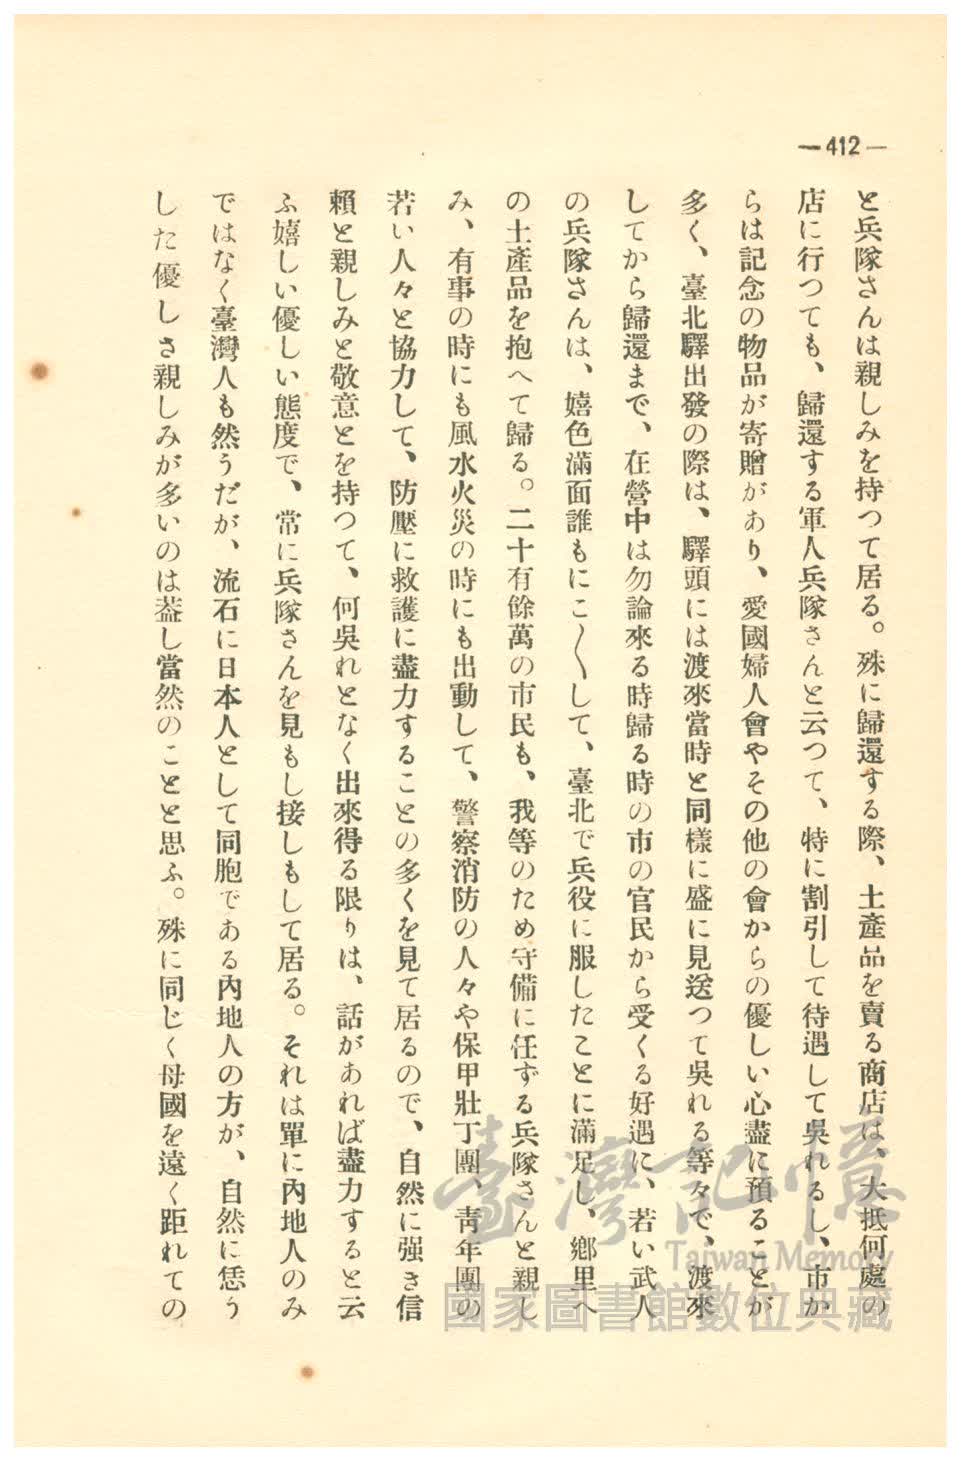 —412—
と兵隊さんは親しみを持つて居る。殊に歸還する際、土產品を賣る商店は、大抵何處の
店に行つても、歸還する軍人兵隊さんと云つて、特に割引して待遇して吳れるし、市か
らは記念の物品が寄贈があり、愛國婦人會やその他の會からの優しい心盡に預ることが
多く、臺北驛出發の際は、驛頭には渡來當時と同樣に盛に見送つて吳れる等々で、渡來
してから歸還まで、在營中は勿論來る時歸る時の市の官民から受くる好遇に、若い武人
の兵隊さんは、嬉色滿面誰もにこ〱して、臺北で兵役に服したことに滿足し、鄕里へ
の土產品を抱へて歸る。二十有餘萬の市民も、我等のため守備に任ずる兵隊さんと親し
み、有事の時にも風水火災の時にも出動して、警察消防の人々や保甲壯丁團、靑年團の
若い人々と協力して、防壓に救護に盡力することの多くを見て居るので、自然に强き信
賴と親しみと敬意とを持つて、何吳れとなく出來得る限りは、話があれば盡力すると云
ふ嬉しい優しい態度で、常に兵隊さんを見もし接しもして居る。それは單に內地人のみ
ではなく臺灣人も然うだが、流石に日本人として同胞である內地人の方が、自然に恁う
した優しさ親しみが多いのは蓋し當然のことと思ふ。殊に同じく母國を遠く距れての
臺灣記憶
Taiwan Memory
國家圖書館數位典藏